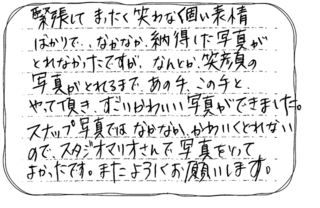 緊張して まったく笑わなく固い表情
ばかりで、なかなか、納得した写真が
とれなかったですが、なんとか、笑顔の
写真がとれるまで、あの手、この手と
やって頂き、すごいかわいい写真ができました。
スナップ写真ではなかなか、かわいくとれない
ので、スタジオマリオさんで写真をとって
よかったです。またよろしくお願いします。